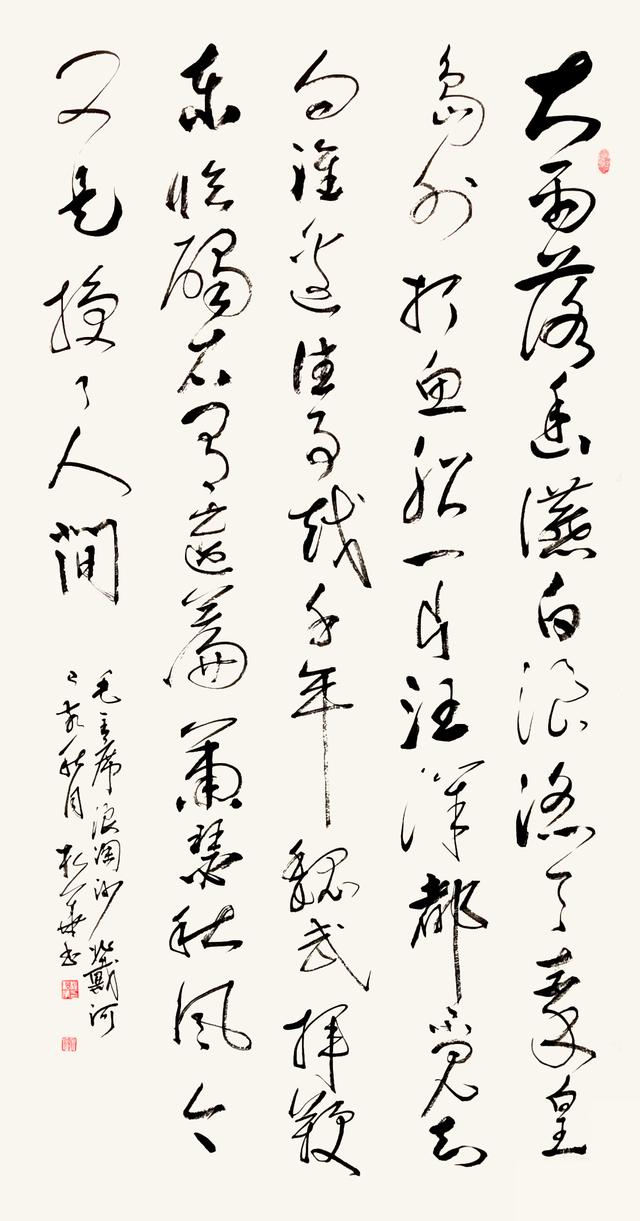 大雨落幽燕白浪滔天秦皇
島外打鱼船一片汪洋都不見知
向誰邊往事越千年魏武揮鞭
東臨碣石有遺篇蕭瑟秋風今
又是換了人間
毛主席浪淘沙北戴河
己亥秋月松華书